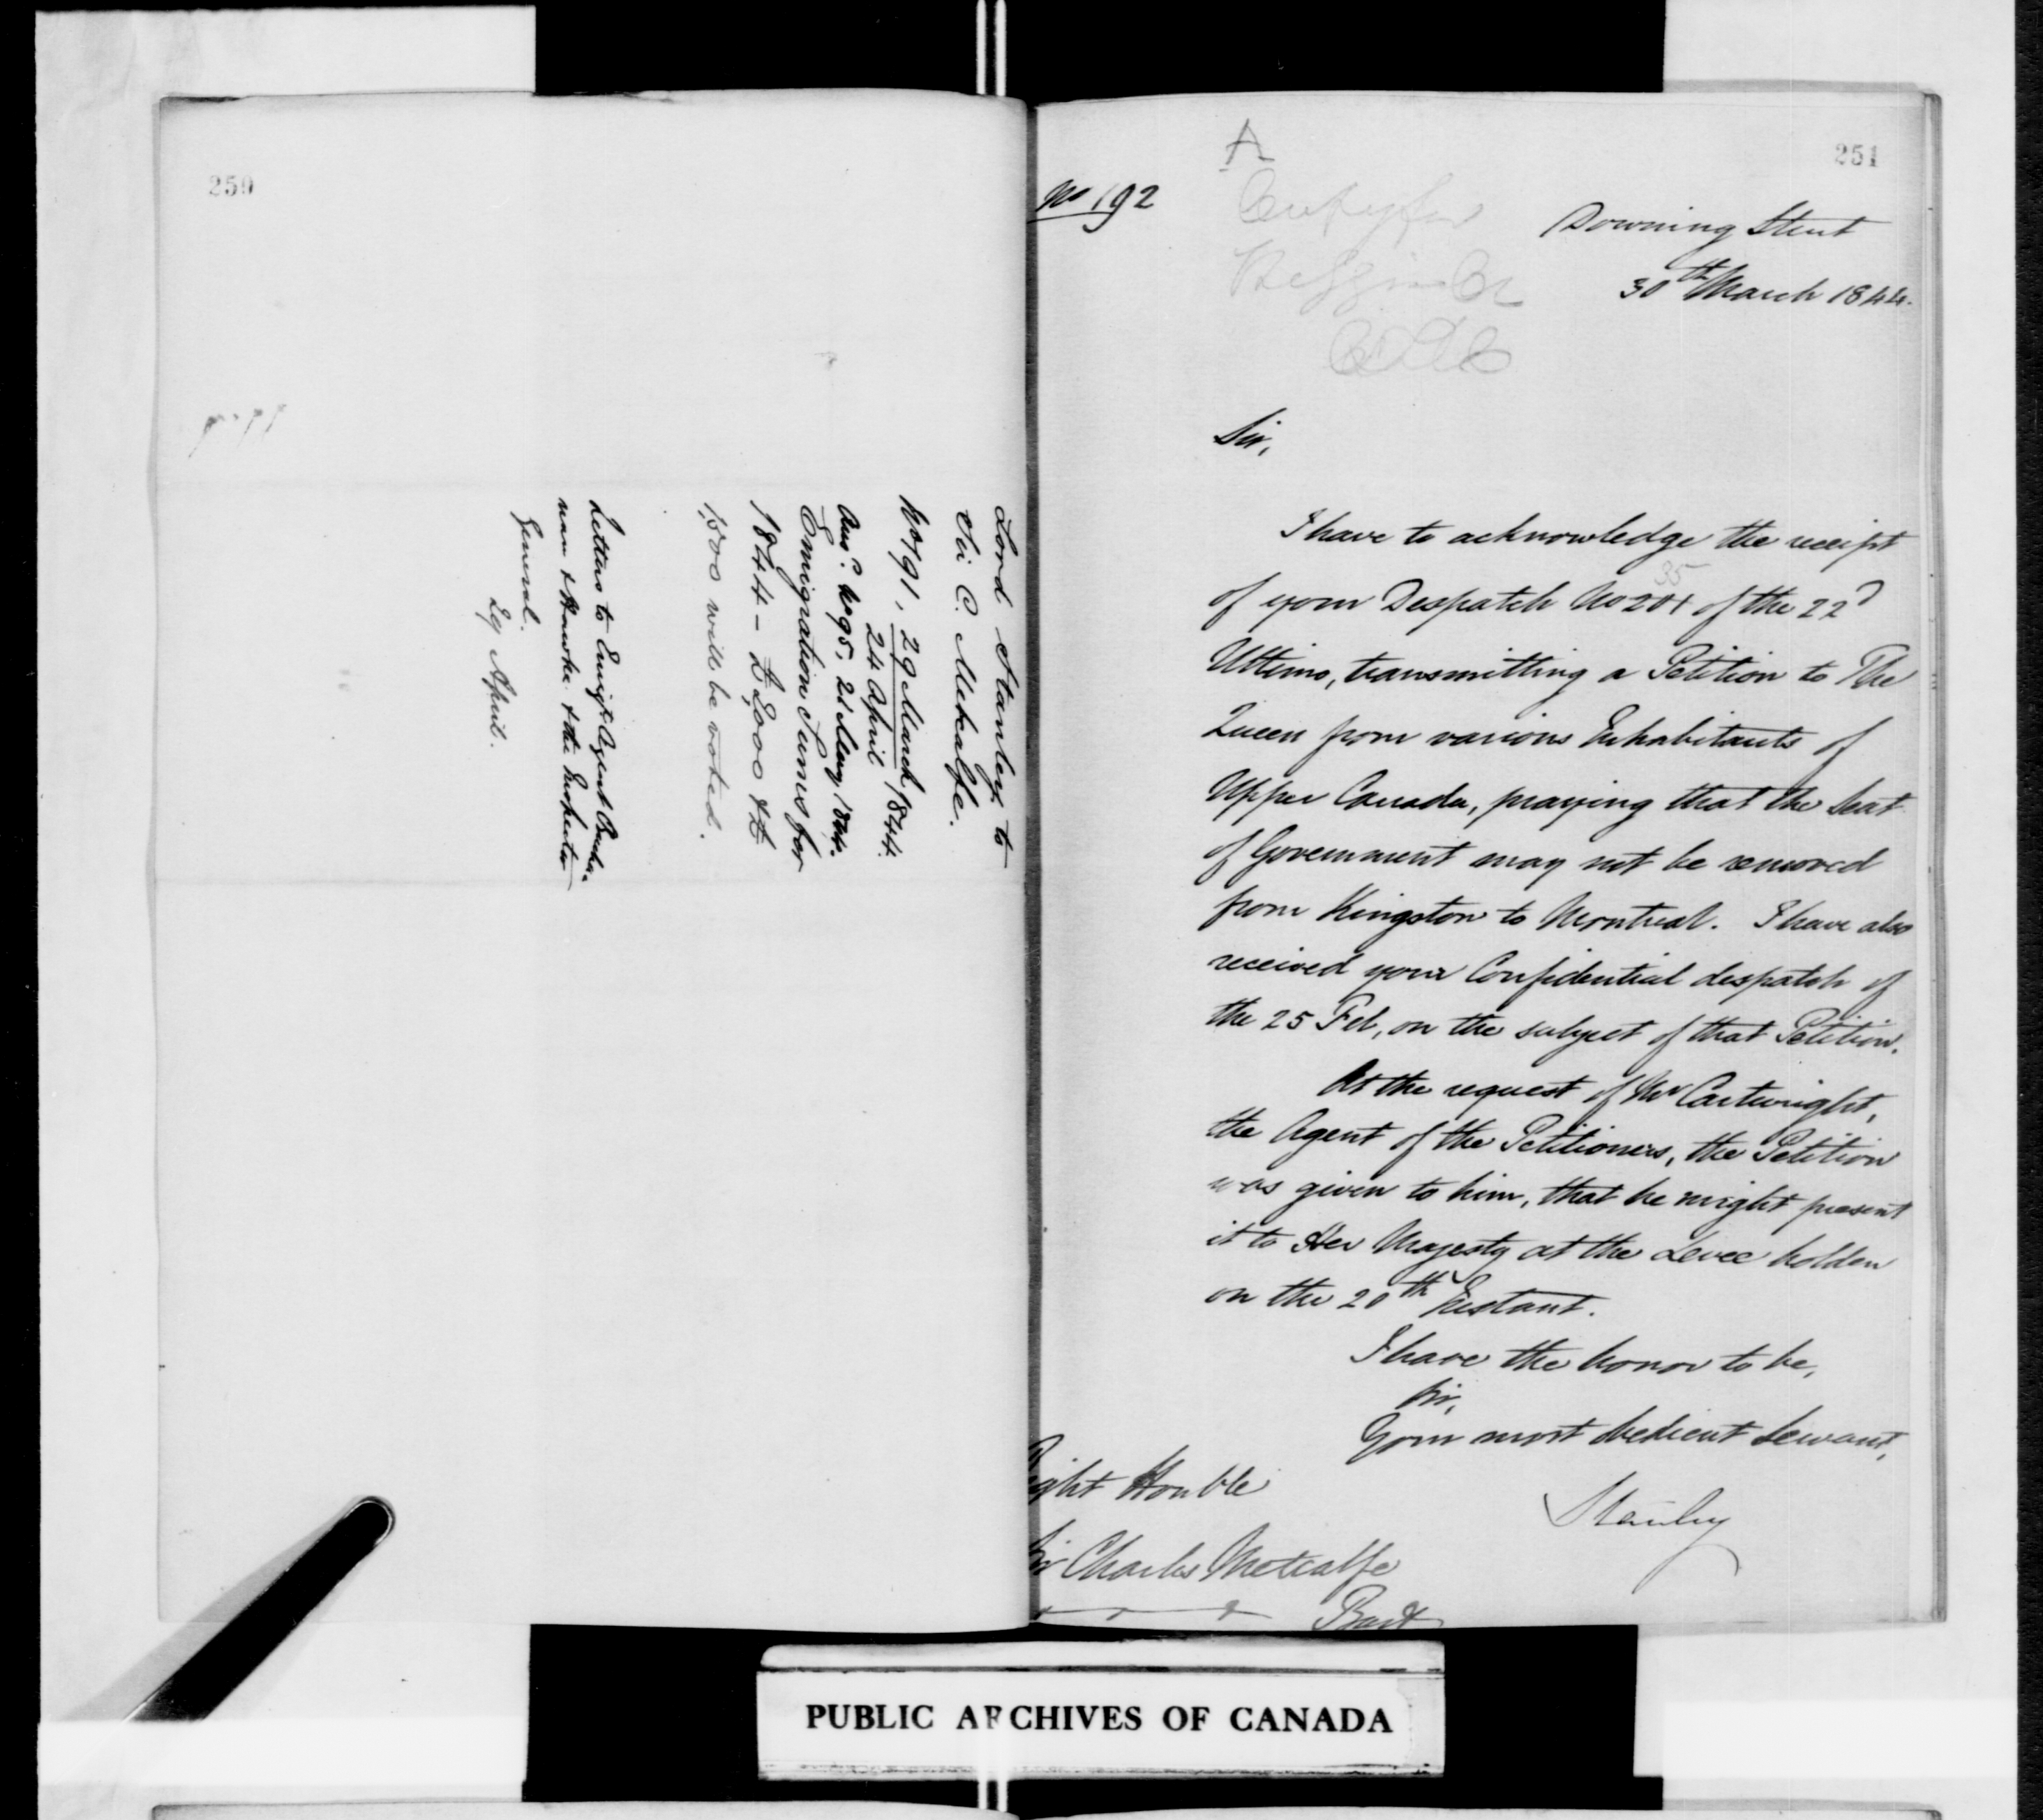 250
Lord Stanley to
Sir C. Metcalfe.
No 191, 29 March 1844.
24 April
Ansd. No 95, 21 May 1844.
Emigration Sums for
1844 - £
1,500 will be voted.
Letters to Emigt Agent
& Hawke & the Inspector
General.
April.
251
A
No 192
Copy for
Downing Street
30th March 1844.
Sir,
I have to acknowledge the receipt
35
of your Despatch No 201 of the 22d
Ultimo, transmitting a Petition to The
Queen from various Inhabitants of
Upper Canada, praying that the Seat
of Government may not be removed
from Kingston to Montreal. I have also
received your Confidential despatch of
the 25 Feb, on the subject of that Petition.
At the request of Mr Cartwright,
the Agent of the Petitioners, the Petition
was given to him, that he might present
it to Her Majesty at the Levee holden
on the 20th Instant.
I have the honor to be,
Sir,
Your most obedient Servant,
Stanley
Right Honble
Sir Charles Metcalfe
Bart
PUBLIC ARCHIVES OF CANADA